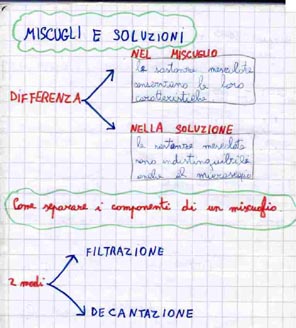 MISCUGLI E SOLUZIONI
NEL MISCUGLIO
le sostanze mescolate
mantengono le loro
caratteristiche
DIFFERENZA
NELLA SOLUZIONE
le sostanze mescolate
sono indistinguibili
anche al microscopio
Come separare i componenti di un miscuglio.
FILTRAZIONE
2 modi
DECANTAZIONE